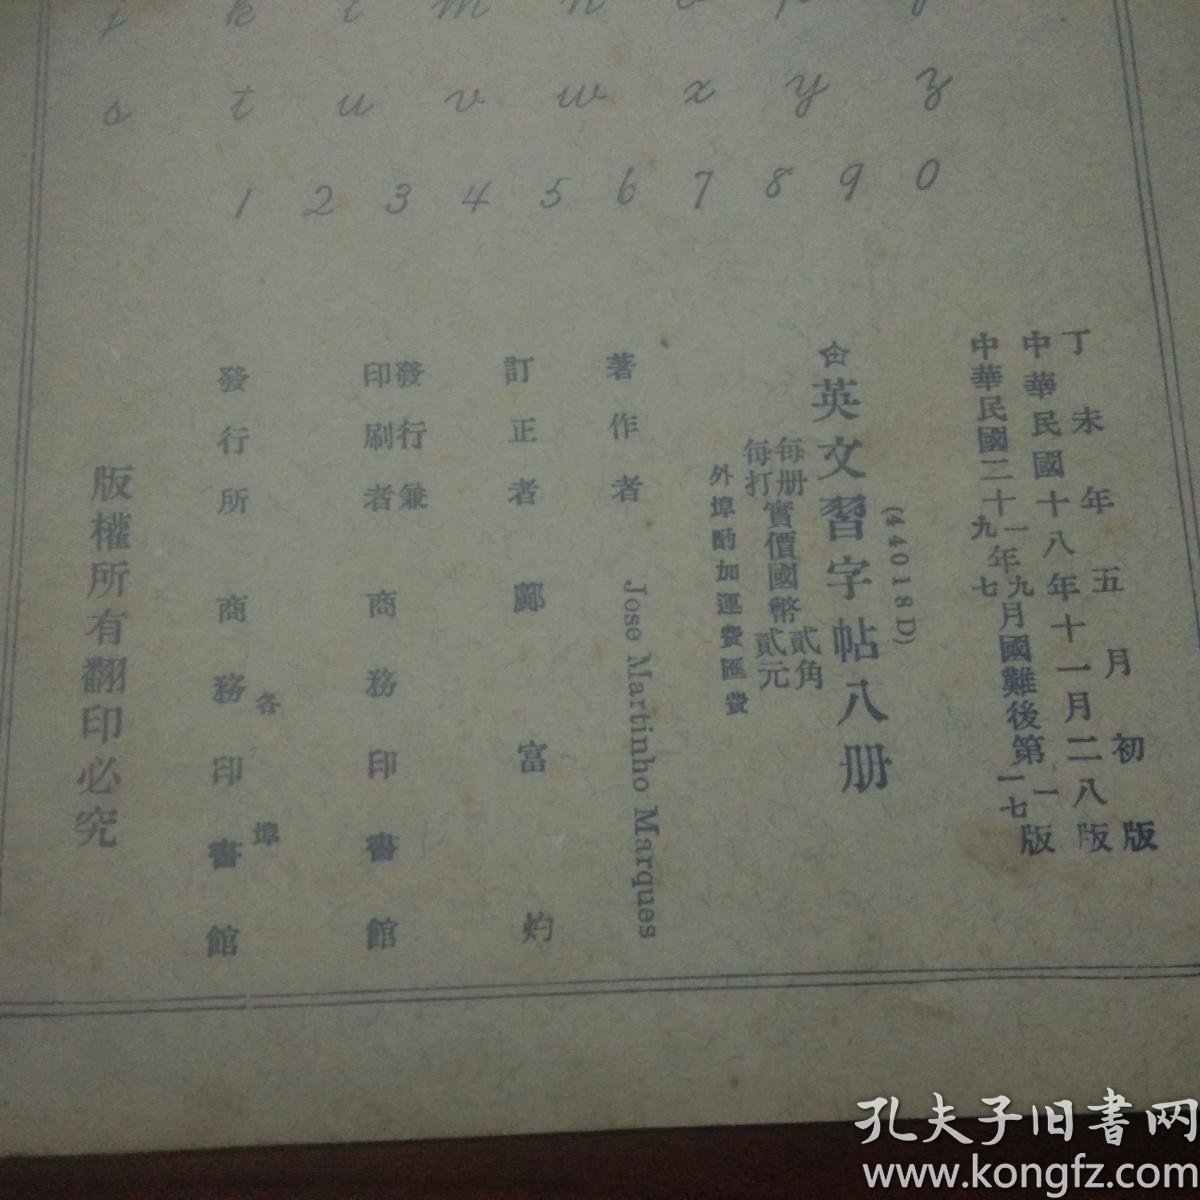 s t u v w x y z
1 2 3 4 5 6 7 8 9 0
丁未年五月初版
中華民國十八年十一月二八版
中華民國二十一年九月國難後第一版
九 七 一七
(44018D)
英文習字帖八册
每册實價國幣貳角
每打 貳元
外埠酌加運費匯費
著作者 Jose Martinho Marques
訂正者 鄺富灼
發行兼印刷者 商務印書館
發行所 各埠 商務印書館
版權所有翻印必究
孔夫子旧書网
www.kongfz.com